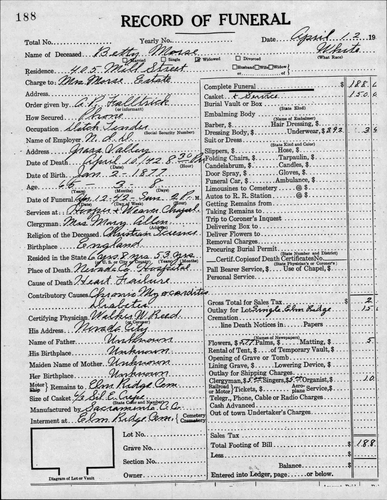 188
RECORD OF FUNERAL
Total No. Yearly No. Date April 12 19
Name of Deceased Betty Morse White
Married Single Widowed Divorced (What Race)
Residence 405 Mill Street Husband Wife Widow
Charge to Mrs Morse Estate
Order given by
How Secured Phone
Occupation (Social Security Number)
Employer N.I.D.
Address Grass Valley
Date of Death April 10, 42 8 30 PM
Date of Birth Jan. 2 - 1877
Age 65 - 3 - 8
Date of Funeral Apr. 12-42 Sun. 2 P.M.
Services at Hooper & Weaver Chapel
Clergyman Mrs Mary Allen
Religion of the Deceased Christian Science
Birthplace England
Resided in the State 53 yrs
Place of Death Nevada Co. Hospital
Cause of Death Heart Failure
Contributory Causes Chronic Myocarditis
Diabetes
Certifying Physician Walker W. Reed
His Address Nevada City
Name of Father Unknown
His Birthplace Unknown
Maiden Name of Mother Unknown
Her Birthplace Unknown
Motor Ship Remains to Elm Ridge Cem
Size of Casket
Manufactured by Sacramento C. Co.
Interment at Elm Ridge Cem. Cemetery Crematory
Lot No.
Grave No.
Section No.
Owner
Diagram of Lot or Vault
Complete Funeral $ 188.
Casket & Service 150
Burial Vault or Box
(State Kind)
Embalming Body
(Name of Embalmer)
Barber, $ Hair Dressing, $
Dressing Body, $ Underwear, $
Suit or Dress
(State Kind and Color)
Slippers, $ Hose, $
Folding Chairs, $ Tarpaulin, $
Candelabrum, $ Candles, $
Door Spray, $ Gloves, $
Funeral Car, $ Ambulance, $
Limousines to Cemetery @ $
Autos to R. R. Station @ $
Getting Remains from
Taking Remains to
Trip to Coroner's Inquest
Delivering Box to
Deliver Flowers to
Removal Charges
Procuring Burial Permit
(State Number and District)
Certif. Copies of Death Certificates No.
(State Physician's or Coroner's)
Pall Bearer Service, $ Use of Chapel, $
Personal Service
Gross Total for Sales Tax $
Outlay for Single Elm Ridge 15
Cremation
line Death Notices in Papers
(Name of Newspapers)
Flowers, $ Palms, $ Matting, $ 5
Rental of Tent, $ of Temporary Vault, $
Opening of Grave or Tomb
Lining Grave, $ Lowering Device, $
Outlay for Shipping Charges
Clergyman, $ Singers, $ Organist, $ 10.
Railroad Motor Tickets, $ Aeroplane Service, $
Telegr., Phone, Cable or Radio Charges
Cash Advanced
Out of town Undertaker's Charges
Sales Tax $
Total Footing of Bill $ 188.
Less
Balance $
Entered into Ledger, page or below.